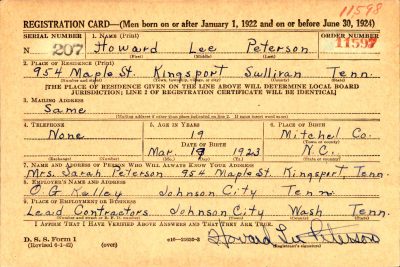 11598
REGISTRATION CARD—(Men born on or after January 1, 1922 and on or before June 30, 1924)
SERIAL NUMBER 1. NAME (Print) ORDER NUMBER
N 207 Howard Lee Peterson 11597
(First) (Middle) (Last)
2. PLACE OF RESIDENCE (Print)
954 Maple St. Kingsport Sullivan Tenn.
(Number and street) (Town, township, village, or city) (County) (State)
[THE PLACE OF RESIDENCE GIVEN ON THE LINE ABOVE WILL DETERMINE LOCAL BOARD
JURISDICTION; LINE 2 OF REGISTRATION CERTIFICATE WILL BE IDENTICAL]
3. MAILING ADDRESS
Same
[Mailing address if other than place indicated on line 2. If same insert word same]
4. TELEPHONE 5. AGE IN YEARS 6. PLACE OF BIRTH
None 19 Mitchel Co.
DATE OF BIRTH (Town or county)
Mar. 19 1923 N.C.
(Exchange) (Number) (Mo.) (Day) (Yr.) (State or country)
7. NAME AND ADDRESS OF PERSON WHO WILL ALWAYS KNOW YOUR ADDRESS
Mrs. Sarah Peterson 954 Maple St. Kingsport, Tenn.
8. EMPLOYER'S NAME AND ADDRESS
O. G. Kelley Johnson City Tenn.
9. PLACE OF EMPLOYMENT OR BUSINESS
Lead Contractors Johnson City Wash Tenn.
(Number and street or R. F. D. number) (Town) (County) (State)
I AFFIRM THAT I HAVE VERIFIED ABOVE ANSWERS AND THAT THEY ARE TRUE.
D. S. S. Form 1
(Revised 6-9-42) (over) Howard Lee Peterson
(Registrant's signature)